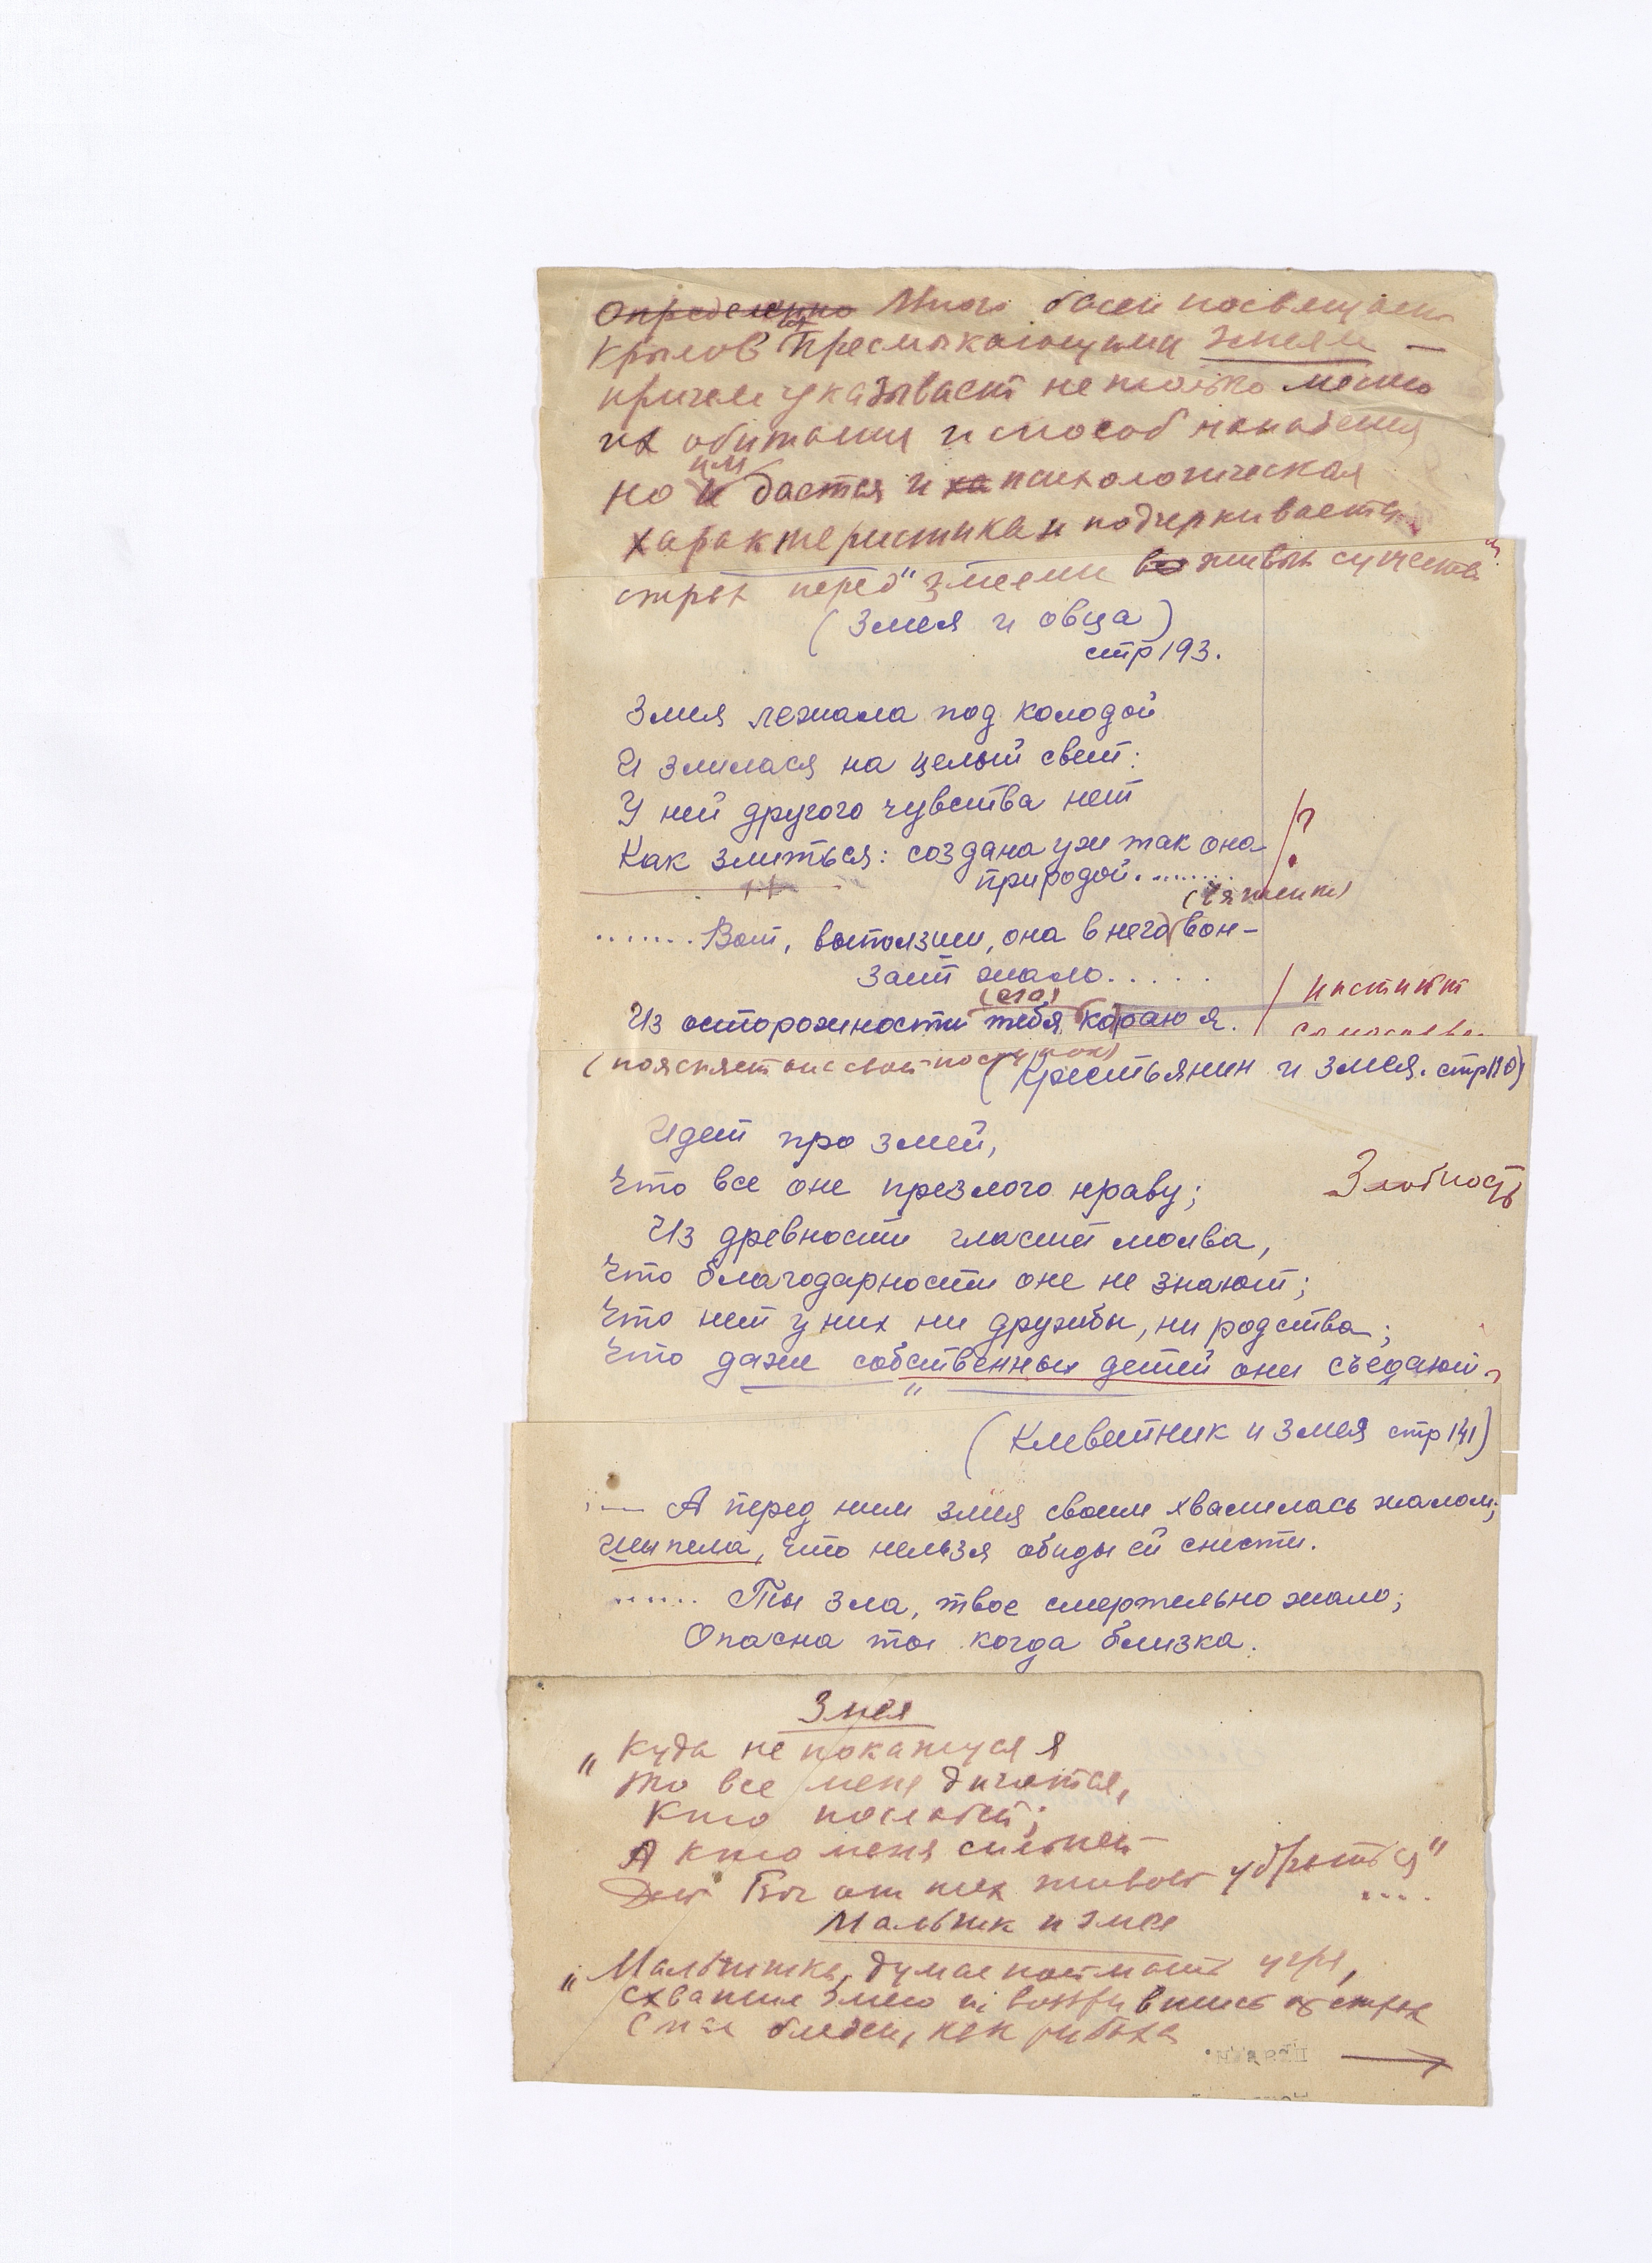 Определенно Много басен посвящает
Крылов Пресмыкающимся змеям —
причем указывает не только место
их обитания и способ нападения
но и им дается и ха психологическая
характеристика и подчеркивается
страх перед "змеями во живых существ"
(Змея и овца)
стр 193.
Змея лежала под колодой
И злилася на целый свет:
У ней другого чувства нет
Как злиться: создана уж так она /?
природой........
(ягненка)
.......Вот, выползши, она в него вон-
зает жало.....
(его)
Из осторожности тебя караю я. / инстинкт
самосохр.
(поясняет она свой поступок)
(Крестьянин и змея. стр 110)
Идет про змей,
Что все оне презлого нраву; Злобность
Из древности гласит молва,
Что благодарности оне не знают;
Что нет у них ни дружбы, ни родства;
Что даже собственных детей они съедают.
(Клеветник и змея стр 141)
— А перед ним змея своим хвалилась жалом;
Шипела, что нельзя обиды ей снести.
...... Ты зла, твое смертельно жало;
Опасна ты когда близка.
Змея
"Куда не покажуся я
То все меня дичатся,
Кто послабей;
А кто меня сильней
Дай Бог от тех живой убраться"
....
Мальчик и змея
"Мальчишка, думая поймать угря,
Схватил змею и воззрившись от страха
Стал бледен, как рубаха